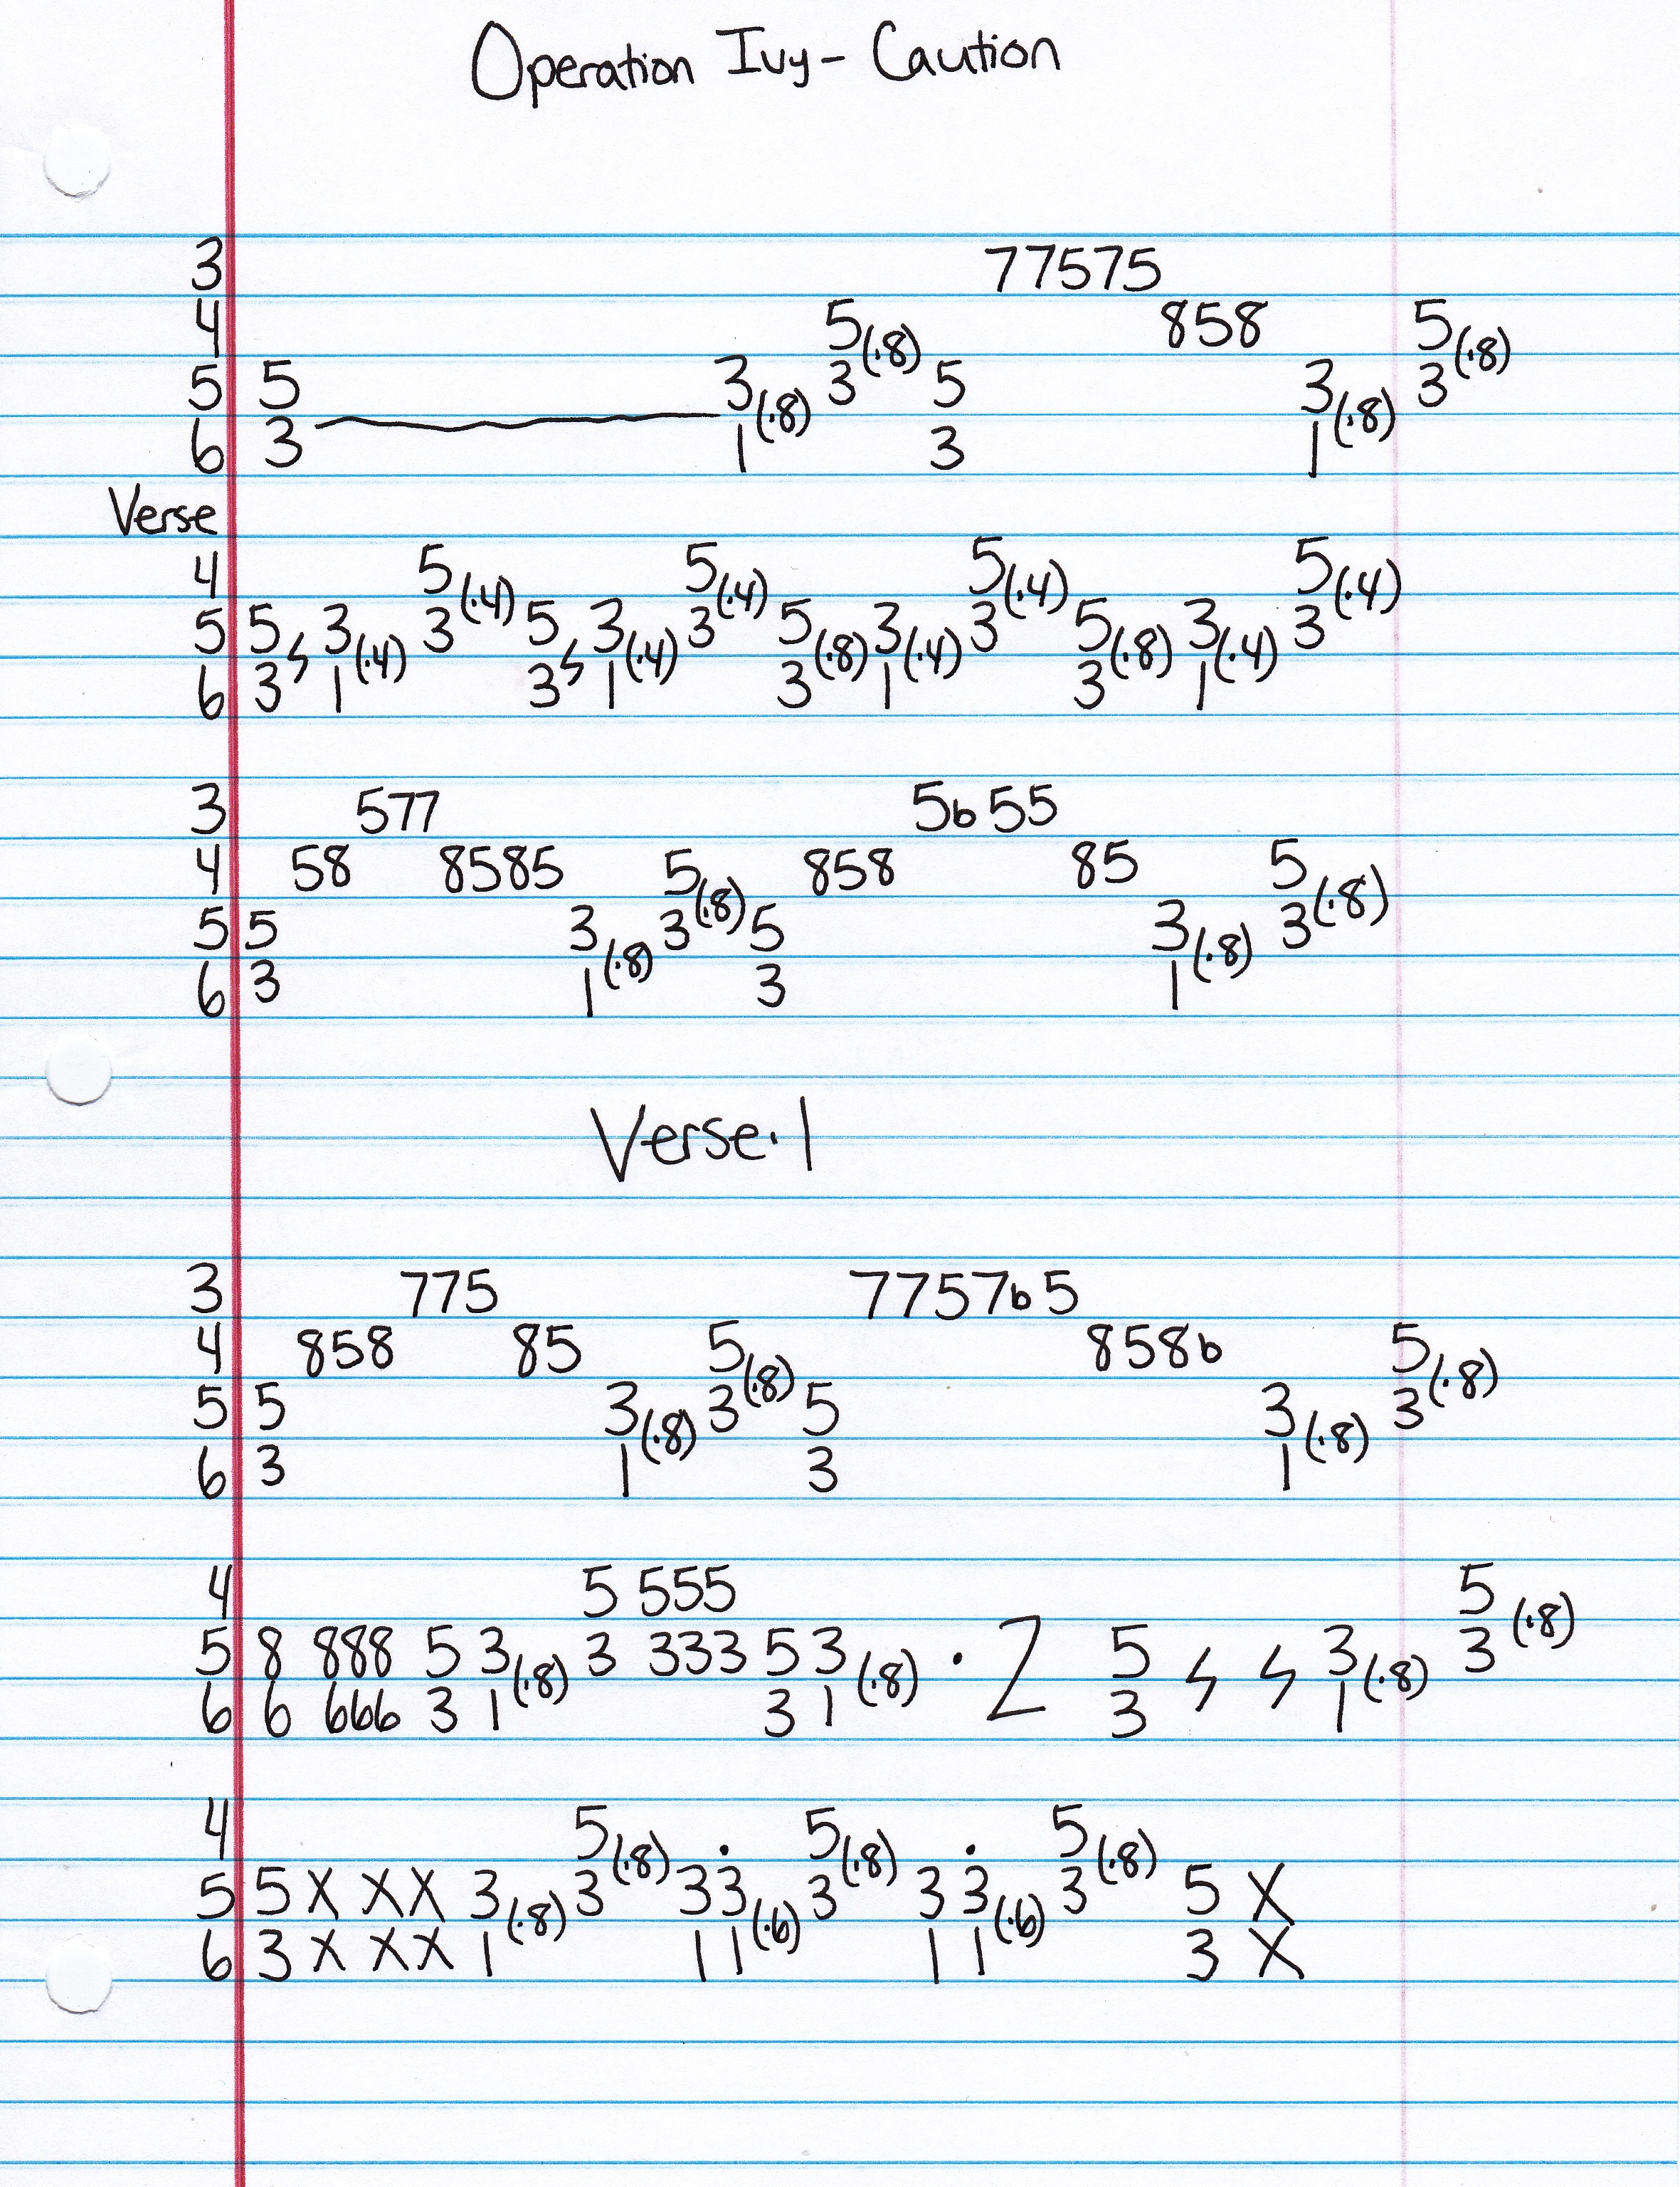 Operation Ivy - Caution
3 77575
4 5(.8) 858 5(.8)
5 5 3(.8) 3 5 3(.8) 3
6 3 1 3 1
Verse
4 5(.4) 5(.4) 5(.4) 5(.4)
5 5 ϟ 3(.4) 3 5 ϟ 3(.4) 3 5(.8) 3(.4) 3 5(.8) 3(.4) 3
6 3 1 3 1 3 1 3 1
3 577 5b 55
4 58 8585 5(.8) 858 85 5(.8)
5 5 3(.8) 3 5 3(.8) 3
6 3 1 3 1
Verse·1
3 775 7757b 5
4 858 85 5(.8) 858b 5(.8)
5 5 3(.8) 3 5 3(.8) 3
6 3 1 3 1
4 5 555 5(.8)
5 8 888 5 3(.8) 3 333 5 3(.8) · 2 5 ϟ ϟ 3(.8) 3
6 6 666 3 1 3 1 3 1
4 5(.8) 5(.8) 5(.8)
5 5 X X X 3(.8) 3 3 3̇(.6) 3 3 3̇(.6) 3 5 X
6 3 X X X 1 1 1 1 1 3 X